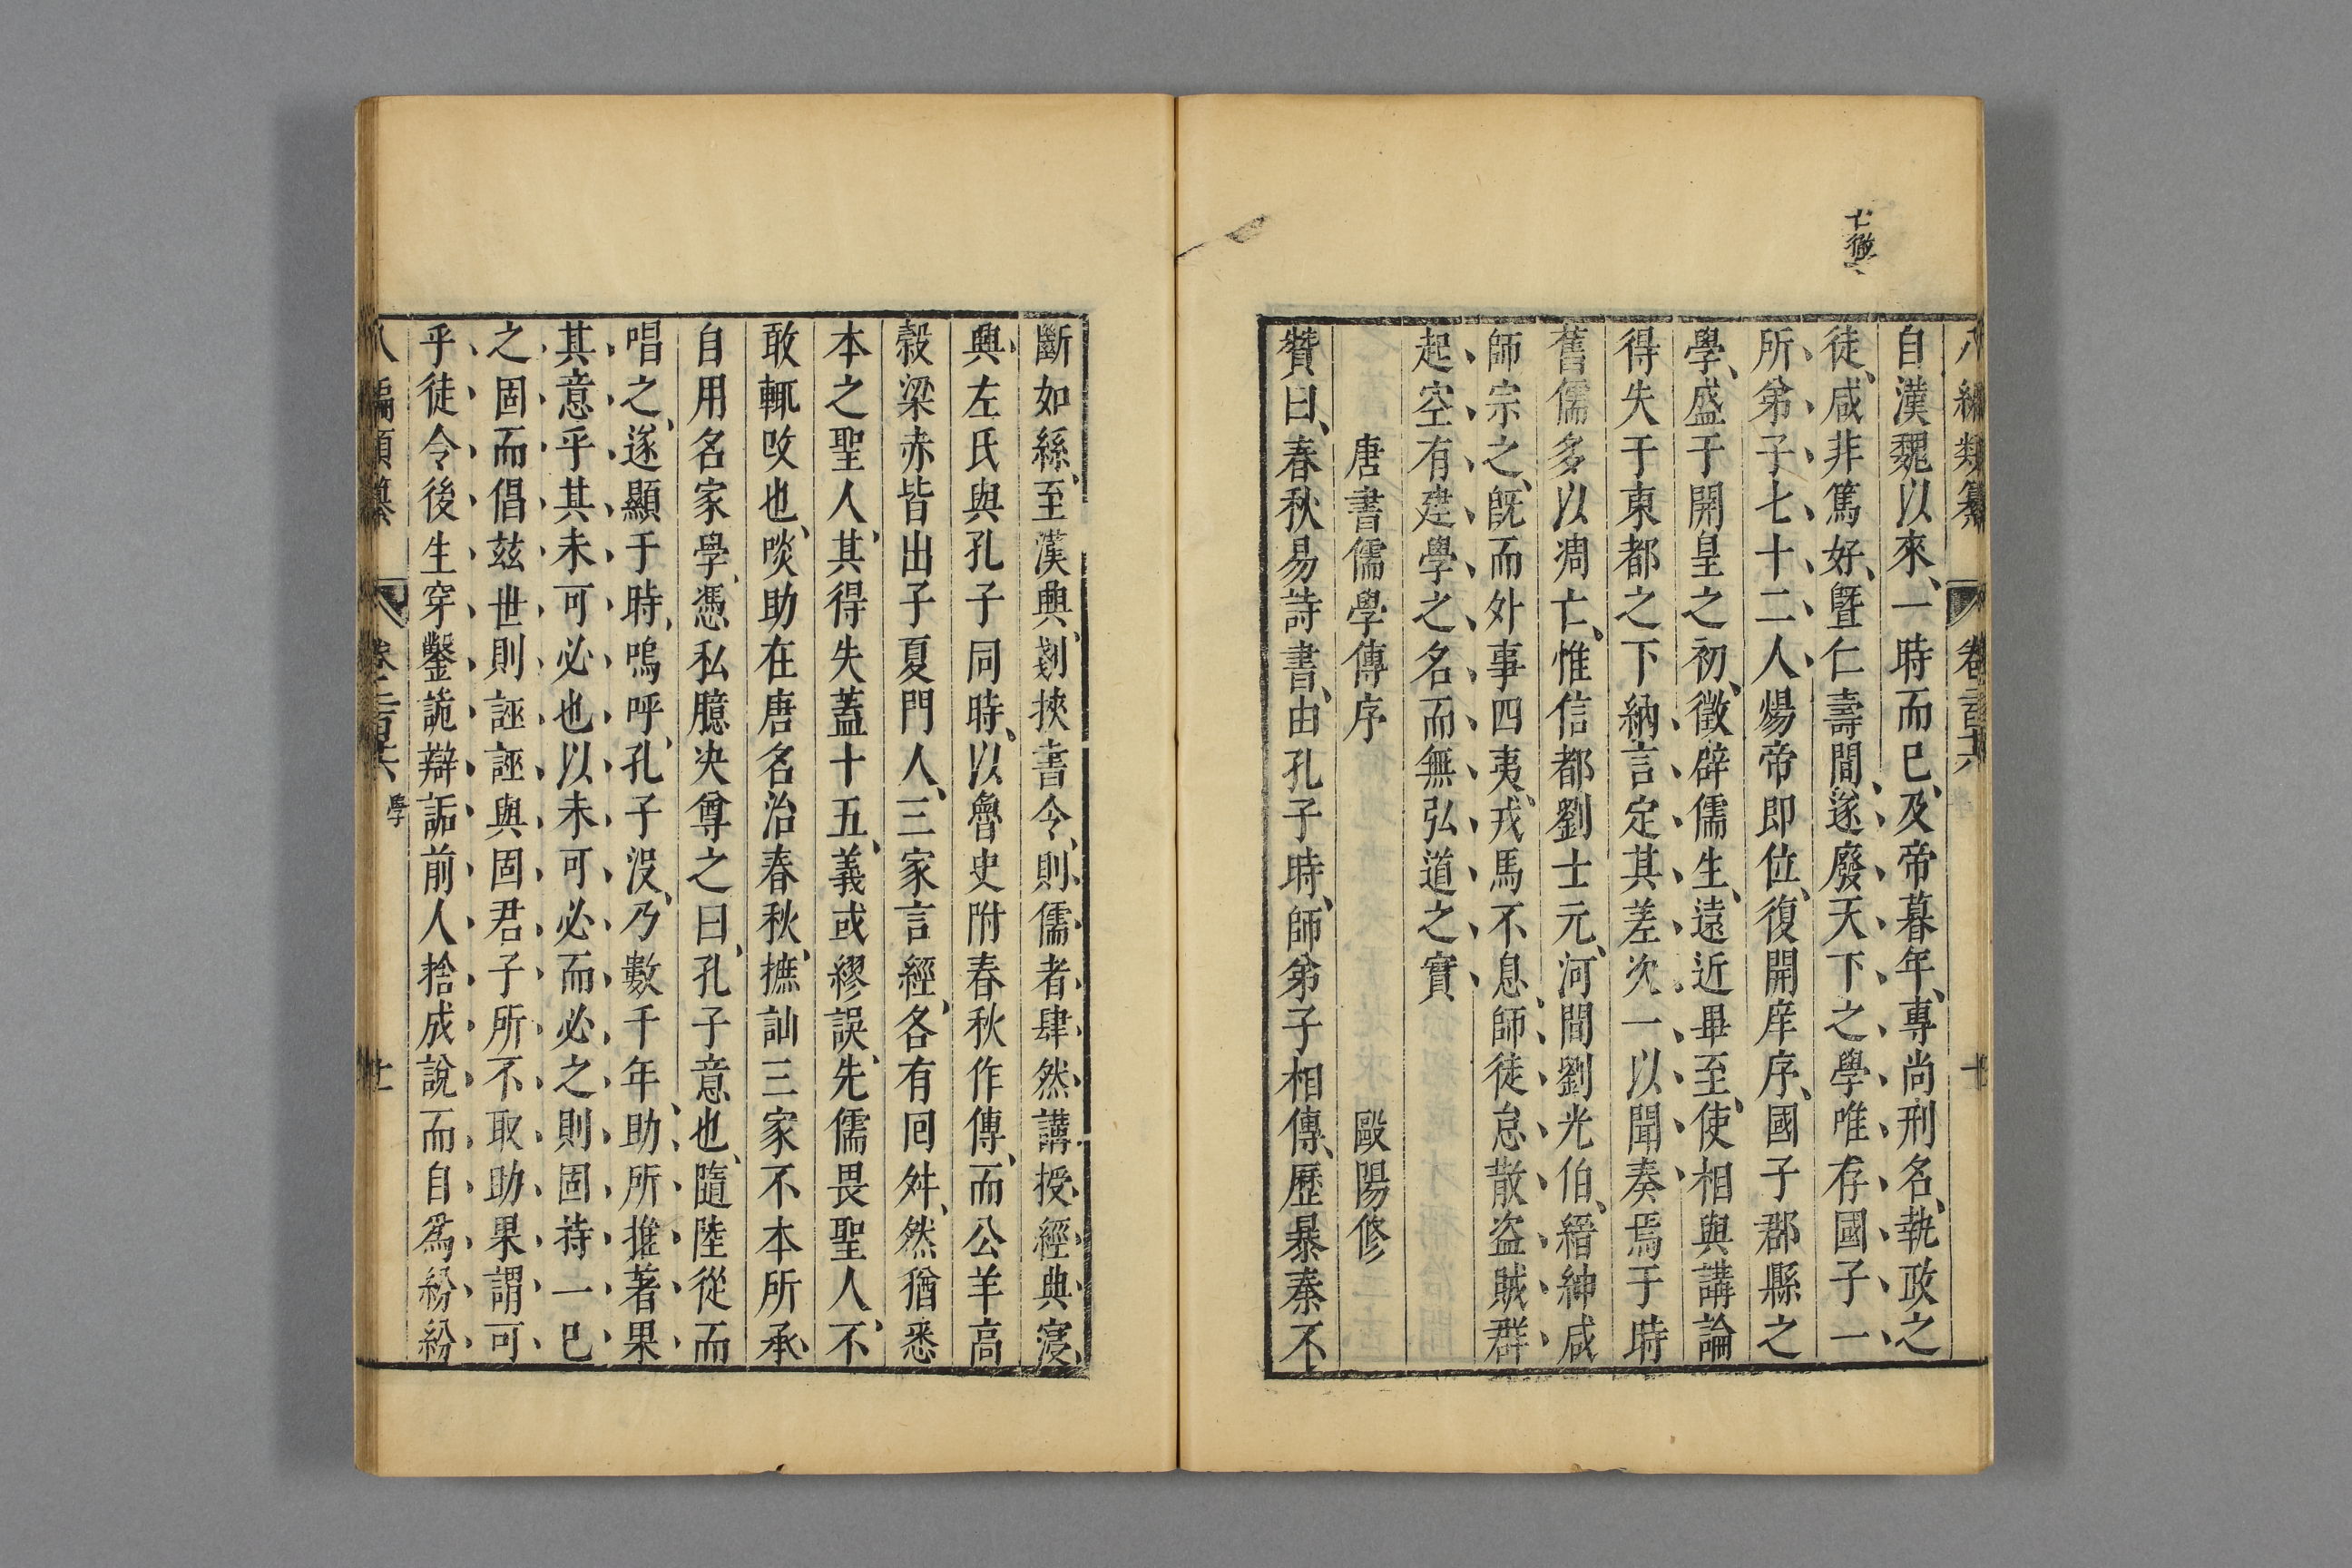 八編類纂 卷二百六 十
自漢魏以來、一時而已、及帝暮年、專尚刑名、執政之
徒、咸非篤好、曁仁壽間、遂廢天下之學唯存國子一
所弟子七十二人煬帝卽位、復開庠序、國子郡縣之
學、盛于開皇之初、徵辟儒生、遠近畢至、使相與講論
得失于東都之下納言定其差次一以聞奏焉于時
舊儒多以凋亡、惟信都劉士元、河間劉光伯、縉紳咸
師宗之、旣而外事四夷、戎馬不息、師徒怠散盜賊群
起空有建學之名而無弘道之實
唐書儒學傳序 歐陽修
贊曰、春秋易詩書、由孔子時、師弟子相傳、歷暴秦不
斷如絲、至漢興、剗挾書令、則儒者肆然講授經典寖
興、左氏與孔子同時、以魯史附春秋作傳、而公羊高
穀梁赤皆出子夏門人、三家言經、各有囘舛、然猶悉
本之聖人、其得失蓋十五、義或繆誤、先儒畏聖人、不
敢輒攺也、啖助在唐名治春秋、摭訕三家不本所承、
自用名家學、憑私臆决尊之曰、孔子意也、隨陸從而
唱之、遂顯于時、嗚呼、孔子沒、乃數千年、助所推著果
其意乎其未可必也以未可必而必之則固持一已
之固而倡玆世則誣誣與固君子所不取助果謂可
乎徒令後生穿鑿詭辯詬前人捨成說而自爲紛紛
八編類纂 卷二百六 學 十一